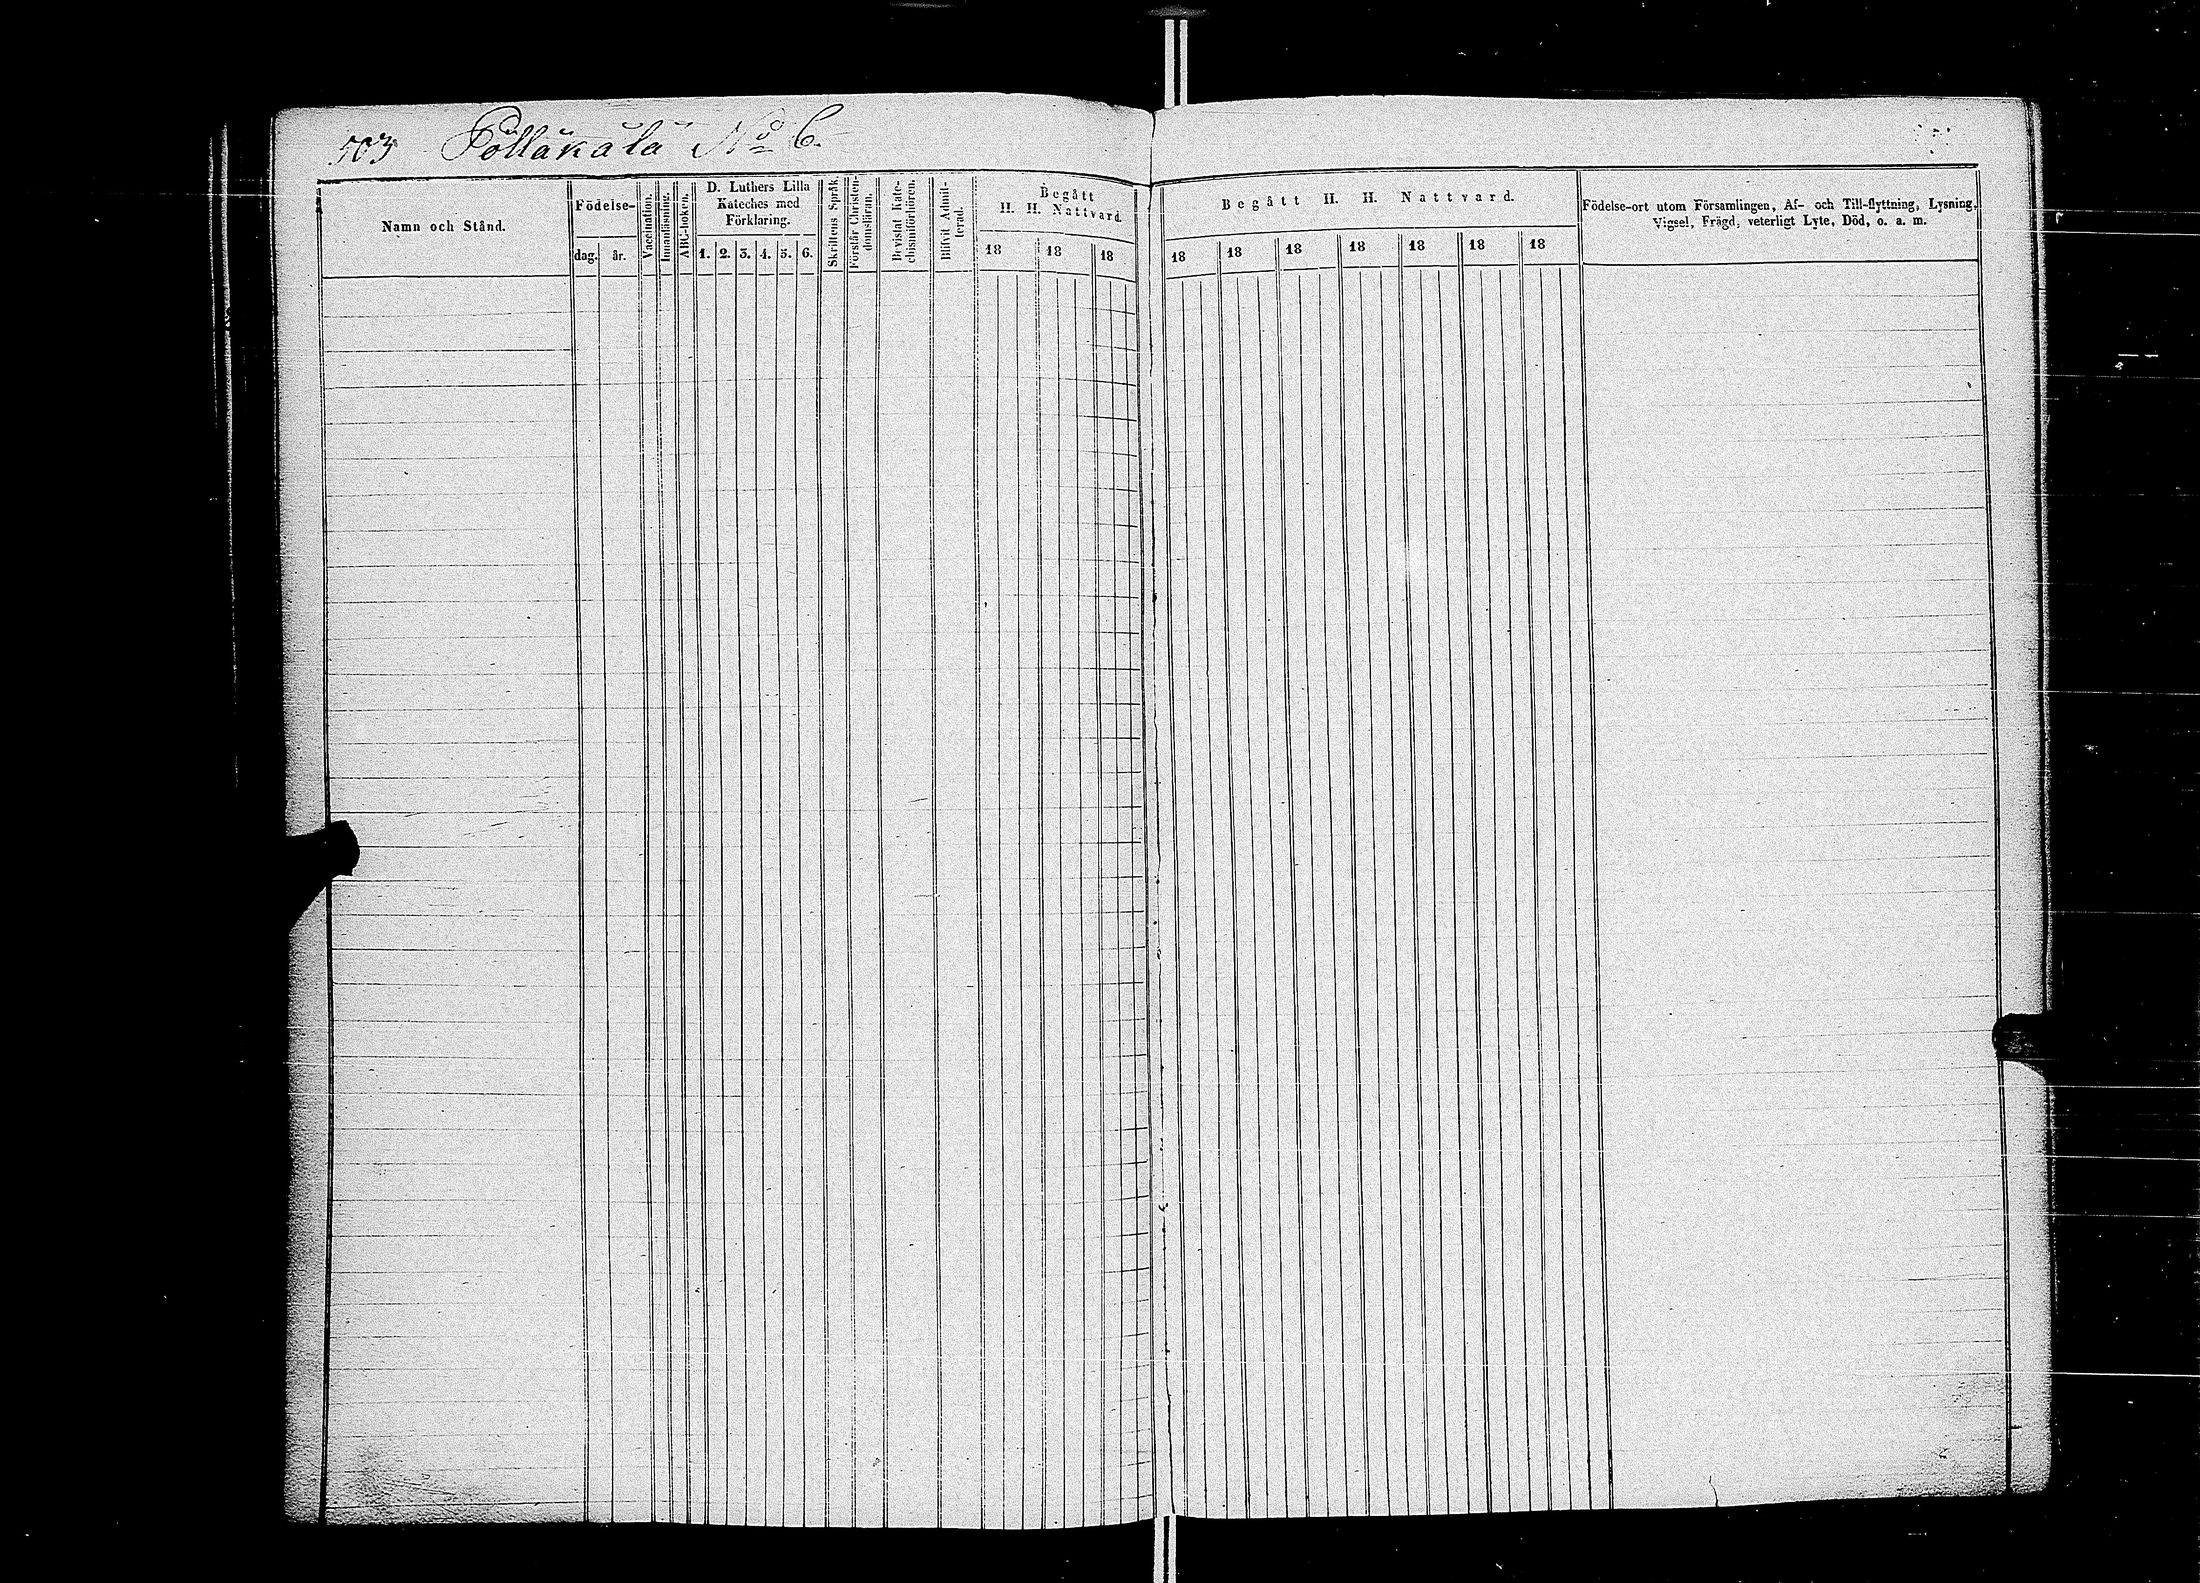 503 Pölläkälä No 6.
Namn och Stånd.
Födelse-
dag. år.
Vaccination.
Innanläsning.
ABC-boken.
D. Luthers Lilla
Kateches med
Förklaring.
1. 2. 3. 4. 5. 6.
Skriftens Språk.
Förstår Christen-
domsläran.
Bevistat Kate-
chismiförhören.
Blifvit Admit-
terad.
Begått
H. H. Nattvard.
18 18 18
Begått H. H. Nattvard.
18 18 18 18 18 18 18
Födelse-ort utom Församlingen, Af- och Till-flyttning, Lysning,
Vigsel, Frägd, veterligt Lyte, Död, o. a. m.